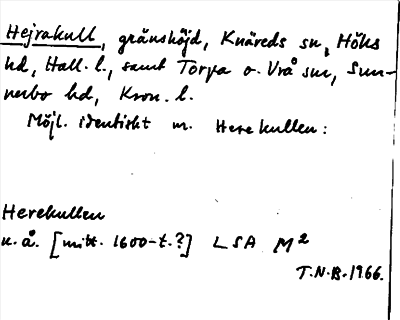 Hejrakull, gränshöjd, Knäreds sn, Höks
hd, Hall. l., samt Torpa o. Vrå snr, Sun-
nerbo hd, Kron. l.
Möjl. identiskt m. Herekullen:
Herekullen
u. å. [mitt. 1600-t.?] LSA M2
T.N.B. 1966.